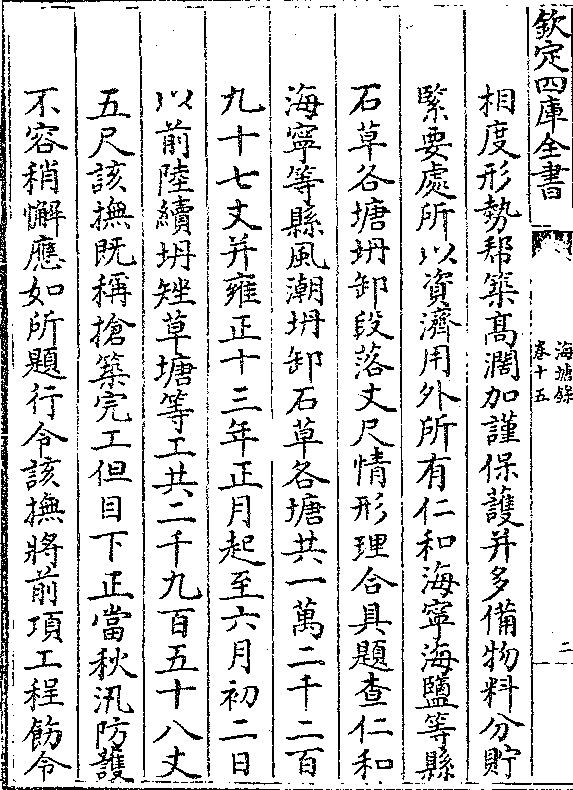 欽定四庫全書
海塘錄
卷十五
二
相度形勢帮築高濶加謹保護并多備物料分貯
緊要處所以資濟用外所有仁和海寧海鹽等縣
石草各塘坍卸段落丈尺情形理合具題查仁和
海寧等縣風潮坍卸石草各塘共一萬二千二百
九十七丈并雍正十三年正月起至六月初二日
以前陸續坍矬草塘等工共二千九百五十八丈
五尺該撫既稱搶築完工但目下正當秋汛防護
不容稍懈應如所題行令該撫將前項工程飭令